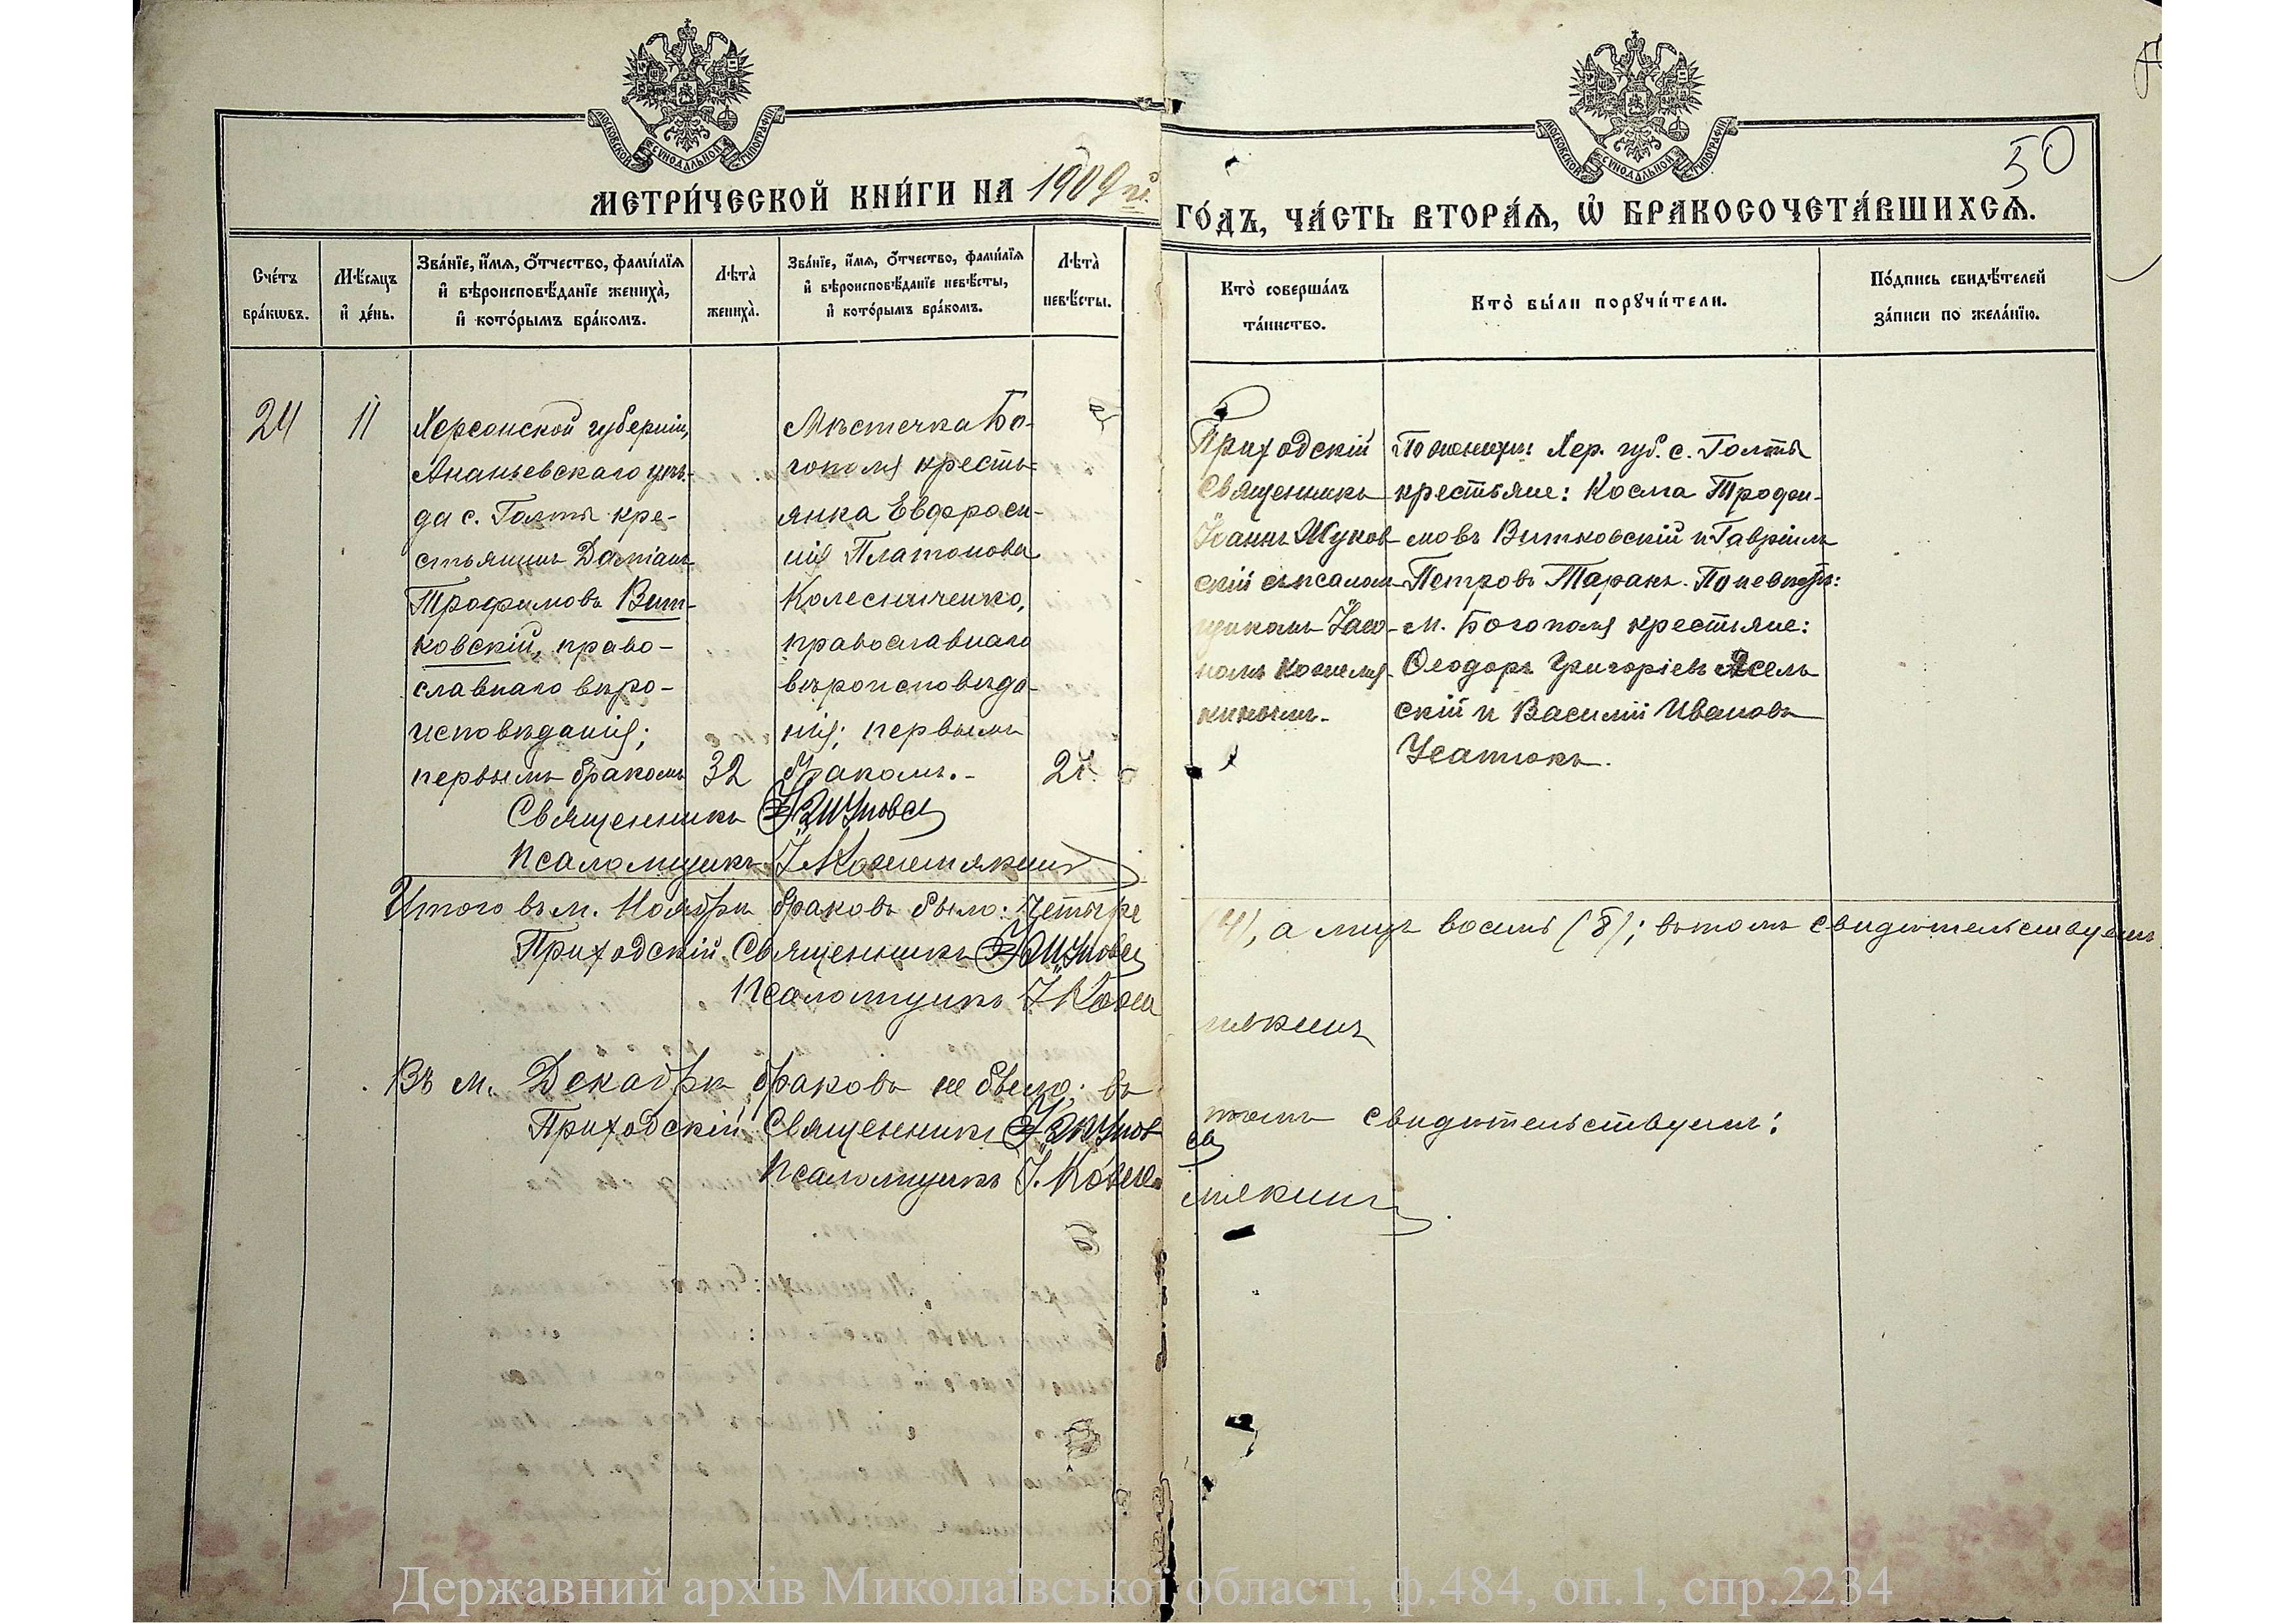 МОСКОВСКОЙ СѴНОДАЛЬНОЙ ТИПОГРАФІИ
МОСКОВСКОЙ СѴНОДАЛЬНОЙ ТИПОГРАФІИ
50
МЕТРИ́ЧЕСКОЙ КНИ́ГИ НА 1909 й.
ГО́ДЪ, ЧА́СТЬ ВТОРА́Ѧ, Ѽ БРАКОСОЧЕТА́ВШИХСѦ.
Сче́тъ бра́кѡвъ.
Мѣ́сяцъ и҆ де́нь.
Зва́нїе, и҆́мѧ, ѻ҆́тчество, фами́лїѧ и҆ вѣроисповѣ́данїе жениха̀, и҆ кото́рымъ бра́комъ.
Лѣта̀ жениха̀.
Зва́нїе, и҆́мѧ, ѻ҆́тчество, фами́лїѧ и҆ вѣроисповѣ́данїе невѣ́сты, и҆ кото́рымъ бра́комъ.
Лѣта̀ невѣ́сты.
Кто̀ соверша́лъ та́инство.
Кто̀ бы́ли порꙋчи́тели.
По́дпись свидѣ́телей за́писи по жела́нїю.
24
11
Херсонской губерніи,
Ананьевскаго уѣз-
да с. Голты кре-
стьянинъ Даміанъ
Трофимовъ Вит-
ковскій, право-
славнаго вѣро-
исповѣданія;
первымъ бракомъ
32
Мѣстечка Бо-
гополя кресть-
янка Евфроси-
нія Платонова
Колесниченко,
православнаго
вѣроисповѣда-
нія; первымъ
бракомъ.-
Приходскій
Священникъ
Іоаннъ Жуков-
скій съ псалом-
щикомъ
По женихѣ: Хер. губ. с. Голты
крестьяне: Косма Трофи-
мовъ Витковскій и Гавріилъ
Петровъ Таранъ. По невѣстѣ:
м. Богополя крестьяне:
Ѳеодоръ Григоріевъ
скій и Василій Ивановъ
Усатюкъ.
Священникъ
Псаломщикъ
Итого въ м. Ноябрѣ браковъ было: Четыре
(4), а лицъ восемь (8); въ томъ свидѣтельствуемъ
Приходскій Священникъ
Псаломщикъ
Въ м. Декабрѣ браковъ не было; въ
томъ свидѣтельствуемъ:
Приходскій Священникъ
Псаломщикъ
Державний архів Миколаївської області, ф.484, оп.1, спр.2234